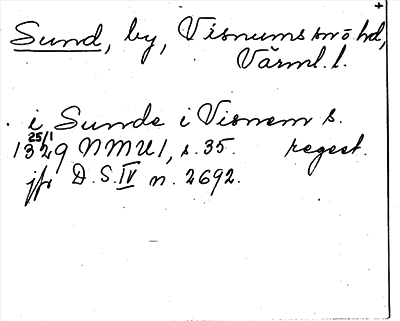 Sund, by, Visnums snö hd,
Värml. l.
i Sunde i Visnem s.
25/1
1329 NMU 1, s. 35. regest.
jfr D.S. IV n. 2692.